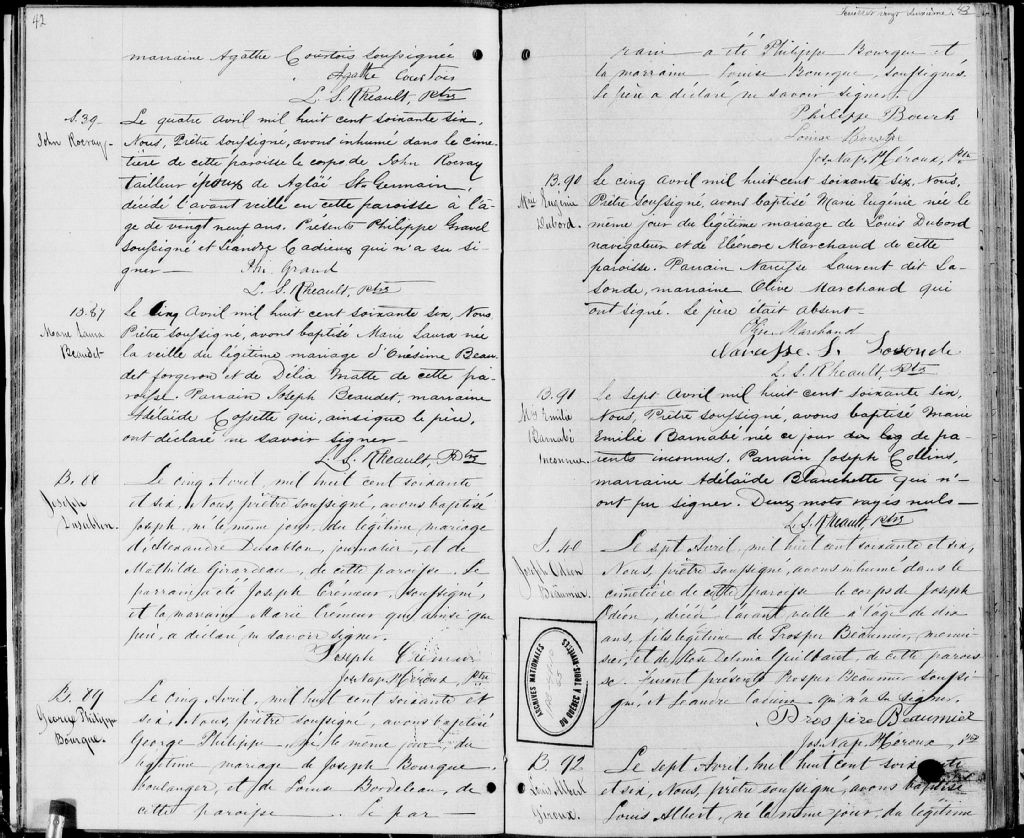 42
marraine Agathe Courtois soussignée
Agathe Courtois
L. S. Rheault, Ptre
S. 39
John Rocray
Le quatre Avril mil huit cent soixante six,
Nous, Prêtre soussigné, avons inhumé dans le cime-
tière de cette paroisse le corps de John Rocray
tailleur époux de Aglaë St Germain,
décédé l'avant veille en cette paroisse à l'â-
ge de vingt neuf ans. Présents Philippe Gravel
soussigné et Léandre Cadieux qui n'a su si-
gner —
L. S. Rheault, Ptre
B. 87
Marie Laura
Beaudet
Le Cinq Avril mil huit cent soixante six, Nous
Prêtre soussigné, avons baptisé Marie Laura née
la veille du légitime mariage d'Onésime Beau-
det forgeron et de Délia Matte de cette pa-
roisse. Parrain Joseph Beaudet, marraine
Adélaïde Cossette qui, ainsi que le père,
ont déclaré ne savoir signer —
L. S. Rheault, Ptre
B. 88
Joseph
Dusablon.
Le cinq Avril, mil huit cent soixante
et six, Nous, prêtre soussigné, avons baptisé
Joseph, né le même jour, du légitime mariage
d'Alexandre Dusablon, journalier, et de
Mathilde Girardeau, de cette paroisse. Le
parrain a été Joseph Crémeur, soussigné,
et la marraine Marie Crémeur qui ainsi que
père, a déclaré ne savoir signer.
Joseph Crémeur
Jos. Nap. Héroux, Ptre
B. 89
George Philippe
Bourque.
Le cinq Avril, mil huit cent soixante et
six, Nous, prêtre soussigné, avons baptisé
George Philippe né le même jour du
légitime mariage de Joseph Bourque
boulanger, et de Louise Bordeleau, de
cette paroisse. Le par —
Feuillet vingt deuxième. 43
rain a été Philippe Bourque et
la marraine Louise Bourque, soussignés.
Le père a déclaré ne savoir signer.
Philippe Bourk
Louise
Jos. Nap. Héroux, Ptre
B. 90
Mie Eugénie
Dubord.
Le cinq Avril mil huit cent soixante six, Nous,
Prêtre soussigné, avons baptisé Marie Eugénie née le
même jour du légitime mariage de Louis Dubord
navigateur et de Eléonore Marchand de cette
paroisse. Parrain Narcisse Laurent dit La-
sonde, marraine Olive Marchand qui
ont signé. Le père était absent —
Olive Marchand
Narcisse L. Lasonde
L. S. Rheault, Ptre
B. 91
Mie Emilie
Barnabé
Inconnue.
Le sept Avril mil huit cent soixante six,
Nous, Prêtre soussigné, avons baptisé Marie
Emilie Barnabé née ce jour de pa-
rents inconnus. Parrain Joseph Collins,
marraine Adélaïde Blanchette qui n'-
ont pu signer. Deux mots rayés nuls —
L. S. Rheault Ptre
S. 40
Joseph Odeon
Beaumier.
Le sept Avril, mil huit cent soixante et six,
Nous, prêtre soussigné, avons inhumé dans le
cimetière de cette paroisse le corps de Joseph
Odéon, décédé l'avant veille à l'âge de dix
ans, fils légitime de Prosper Beaumier, menui-
sier, et de Rose Delima Guilbault, de cette parois-
se. Furent présents Prosper Beaumier soussi-
gné, et Léandre Cadieux qui n'a su signer.
Prospère Beaumier
Jos. Nap. Héroux, Ptre
ARCHIVES NATIONALES
DU QUÉBEC À TROIS-RIVIÈRES
B. 92
Louis Albert
Giroux.
Le sept Avril, mil huit cent soixante
et six, Nous, prêtre soussigné, avons baptisé
Louis Albert, né le même jour, du légitime